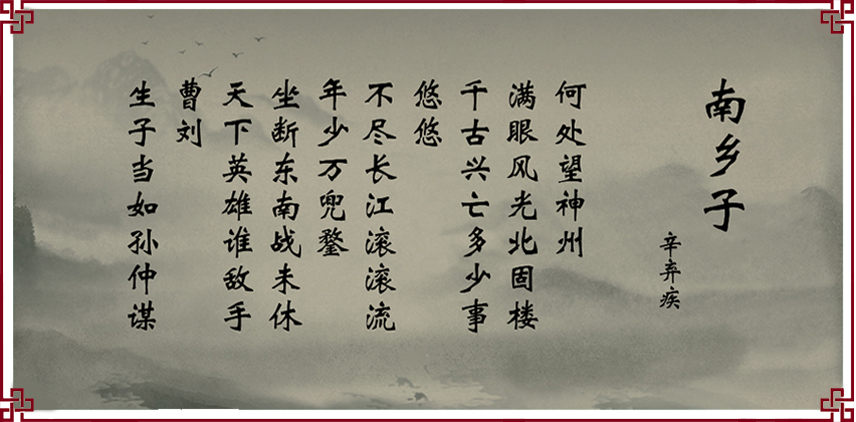 南乡子
辛弃疾
何处望神州
满眼风光北固楼
千古兴亡多少事
悠悠
不尽长江滚滚流
年少万兜鍪
坐断东南战未休
天下英雄谁敌手
曹刘
生子当如孙仲谋